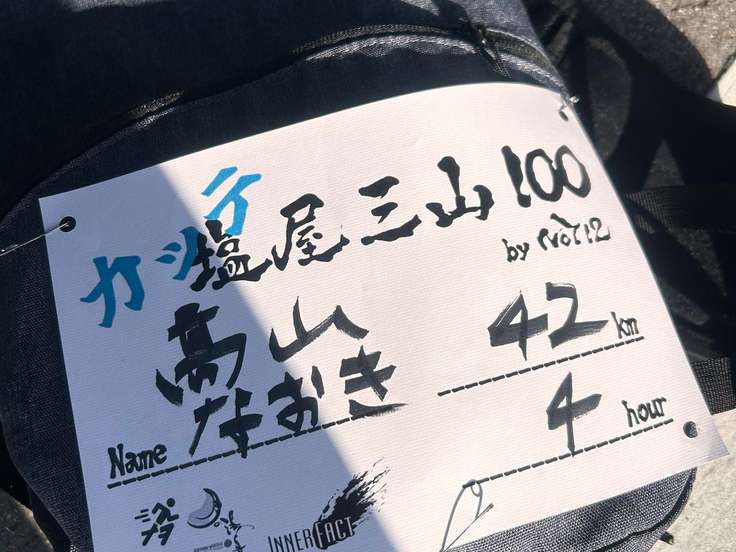 カッテ
塩屋三山100
by
高山
なおき
Name
42 km
4 hour
INNERFACT